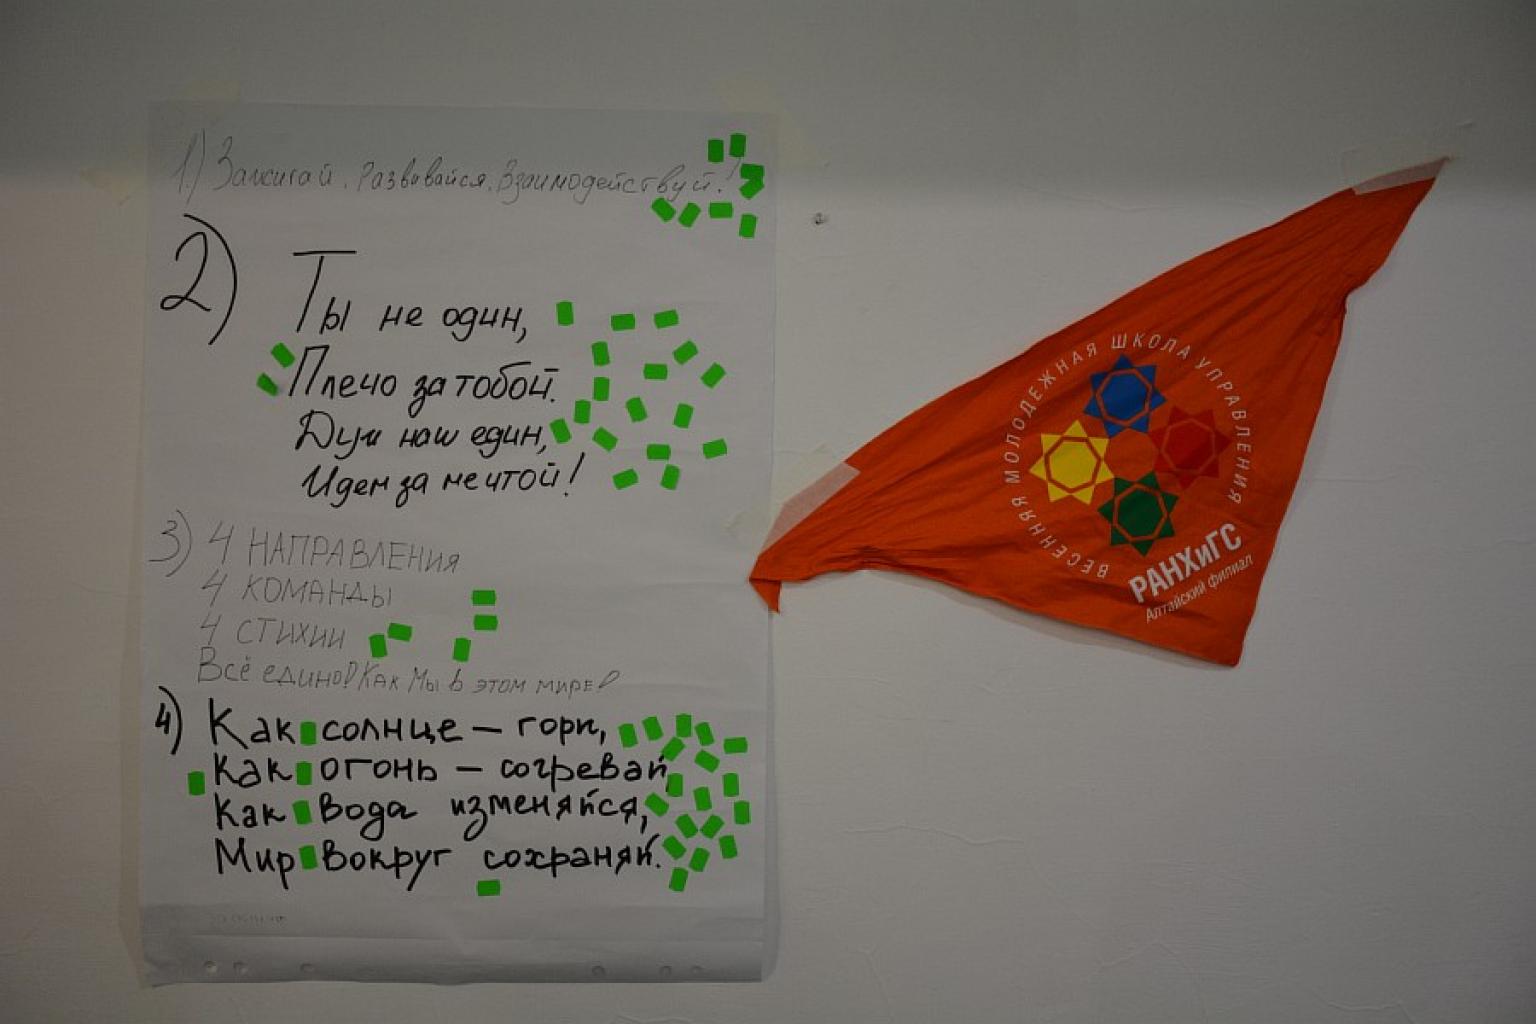 1.) Зажигай. Развивайся. Взаимодействуй!
2) Ты не один,
Плечо за тобой.
Дух наш един,
Идем за мечтой!
3) 4 НАПРАВЛЕНИЯ
4 КОМАНДЫ
4 СТИХИИ
Всё едино! Как Мы в этом мире!
4) Как солнце – гори,
Как огонь – согревай,
Как вода изменяйся,
Мир вокруг сохраняй.
ВЕСЕННЯЯ МОЛОДЕЖНАЯ ШКОЛА УПРАВЛЕНИЯ
РАНХиГС
Алтайский филиал